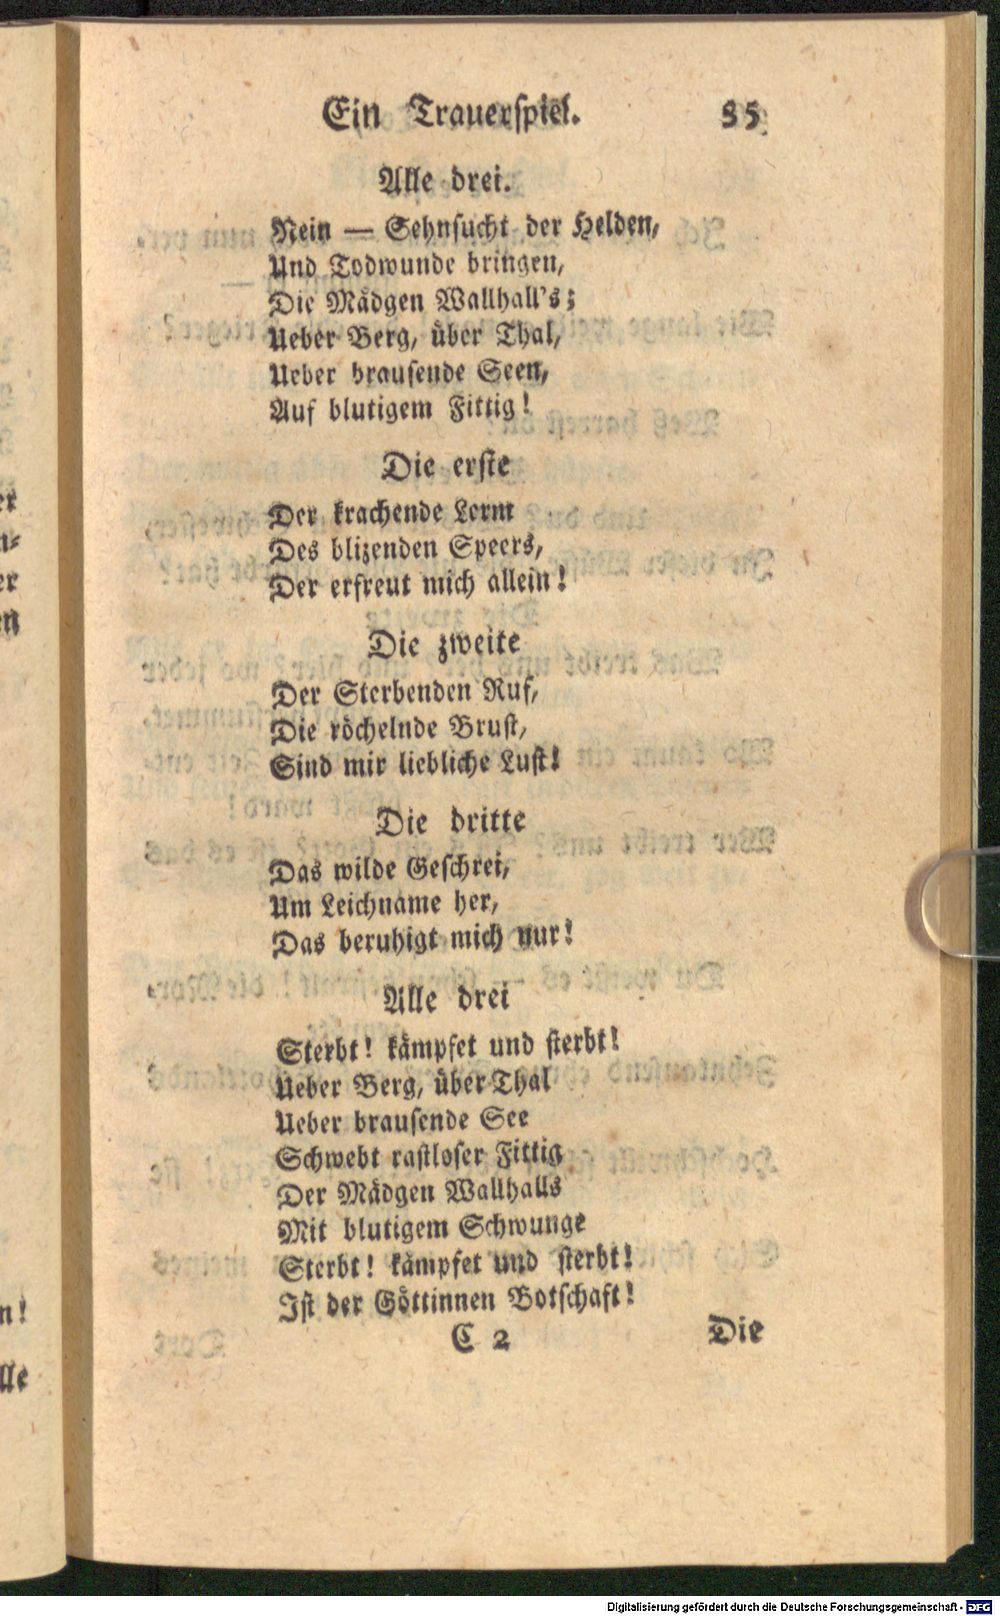 Ein Trauerspiel. 35
Alle drei.
Nein — Sehnsucht der Helden,
Und Todwunde bringen,
Die Mädgen Wallhall's;
Ueber Berg, über Thal,
Ueber brausende Seen,
Auf blutigem Fittig!
Die erste
Der krachende Lerm
Des blizenden Speers,
Der erfreut mich allein!
Die zweite
Der Sterbenden Ruf,
Die röchelnde Brust,
Sind mir liebliche Lust!
Die dritte
Das wilde Geschrei,
Um Leichname her,
Das beruhigt mich nur!
Alle drei
Sterbt! kämpfet und sterbt!
Ueber Berg, über Thal
Ueber brausende See
Schwebt rastloser Fittig
Der Mädgen Wallhalls
Mit blutigem Schwunge
Sterbt! kämpfet und sterbt!
Ist der Göttinnen Botschaft!
C 2 Die
Digitalisierung gefördert durch die Deutsche Forschungsgemeinschaft - DFG